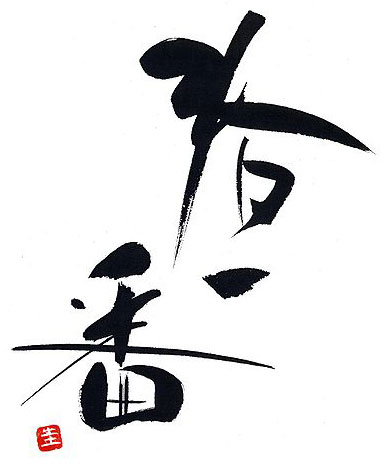 春一番
圭